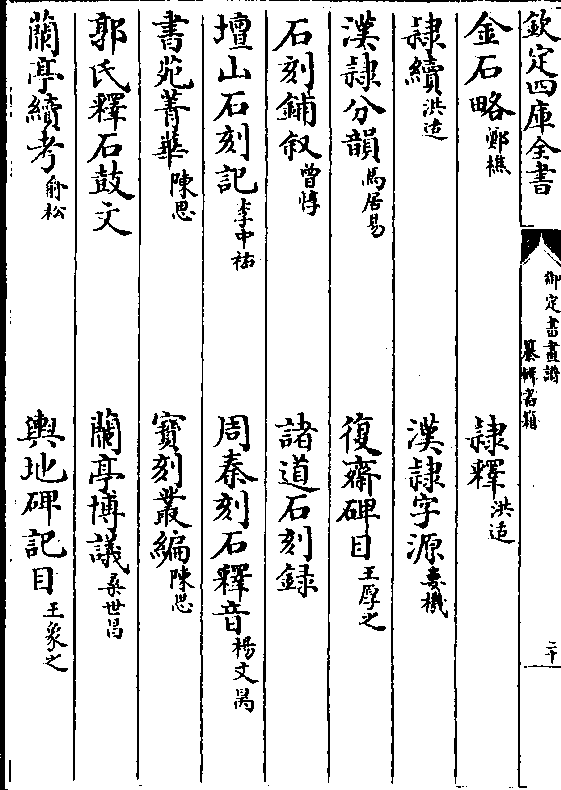 欽定四庫全書
御定書畫譜
纂輯書籍
二十
金石略 鄭樵 隸釋 洪适
隸續 洪适 漢隸字源 婁機
漢隸分韻 馬居易 復齋碑目 王厚之
石刻鋪叙 曾惇 諸道石刻録
壇山石刻記 李中祐 周秦刻石釋音 楊文昺
書苑菁華 陳思 寶刻叢編 陳思
郭氏釋石鼓文 蘭亭博議 桑世昌
蘭亭續考 俞松 輿地碑記目 王象之